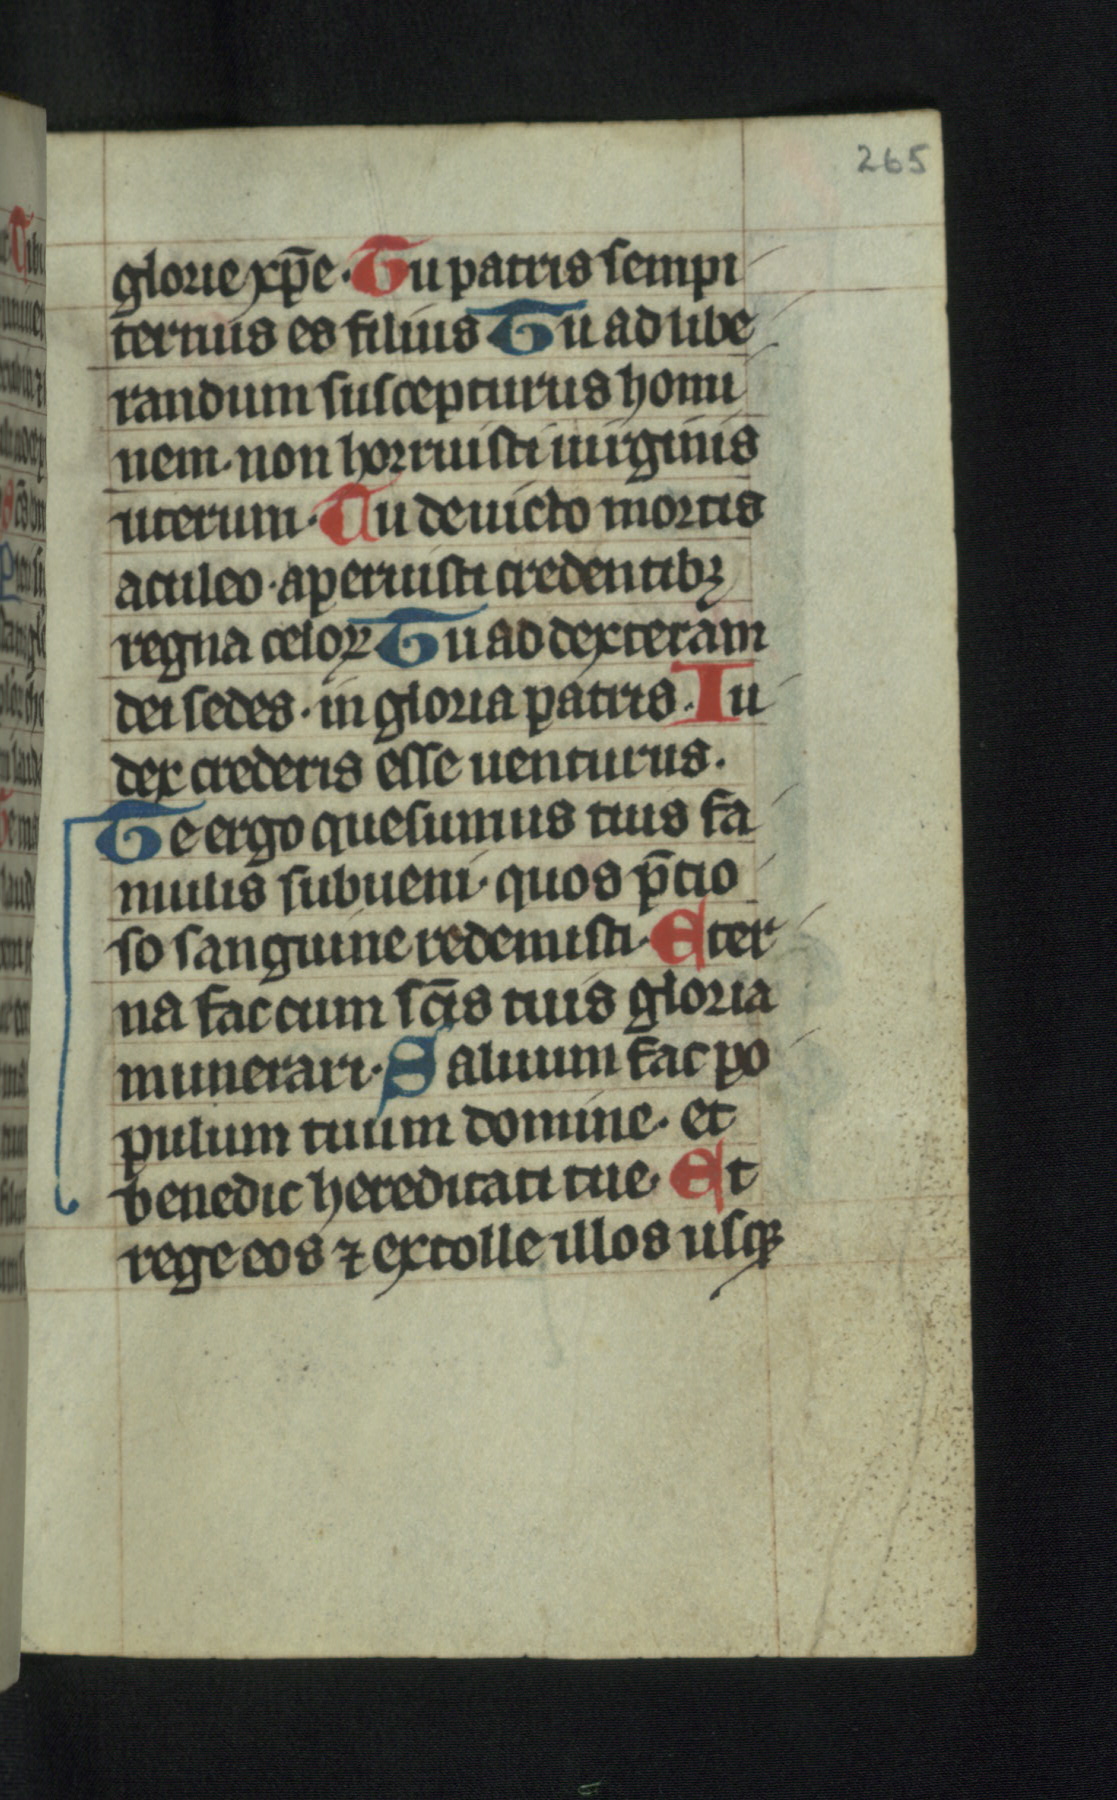 265
glorie xp̄e· Tu patris sempi
ternus es filius Tu ad libe
randum suscepturus homi
nem· non horruisti uirginis
uterum· Tu deuicto mortis
aculeo· aperuisti credentibꝫ
regna celoꝝ Tu ad dexteram
dei sedes· in gloria patris· Iu
dex crederis esse uenturus.
Te ergo quesumus tuis fa
mulis subueni· quos p̄cio
so sanguine redemisti· Eter
na fac cum sc̄is tuis gloria
munerari· Saluum fac po
pulum tuum domine· et
benedic hereditati tue· Et
rege eos ⁊ extolle illos usqꝫ